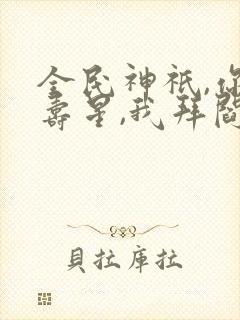 全民神祇,你
壽星,我拜閻
貝拉庫拉